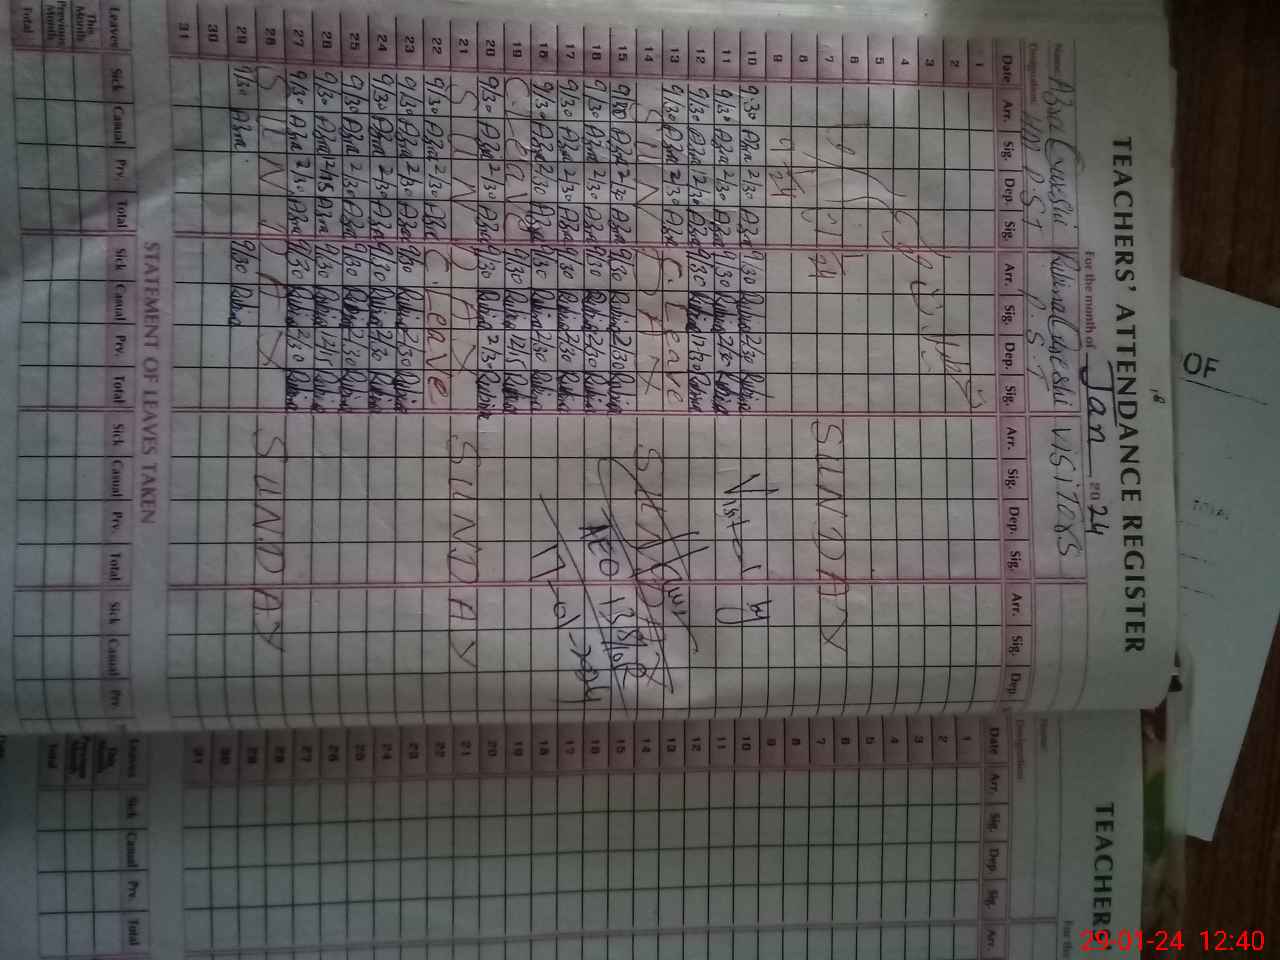 TEACHERS' ATTENDANCE REGISTER
For the month of Jan 2024
Name Azra Rubina VISITORS
Designation HM P.S.T P.S.T
Date Arr. Sig. Dep. Sig. Arr. Sig. Dep. Sig. Arr. Sig. Dep. Sig. Arr. Sig. Dep.
1
2
3
4
5
6
7 SUNDAY
8
9
10 9:30 Azra 2/30 Azra 9/30 Rubina 2/30 Rubina Visited by
11 9/30 Azra 2/30 Azra 9/30 Rubina 2/30 Rubina
12 9/30 Azra 12/30 Azra 9/30 Rubina 12/30 Rubina
13 9/30 Azra 2/30 Azra C. Leave
14 SUNDAY SUNDAY
15 9/30 Azra 2/30 Azra 9/30 Rubina 2/30 Rubina
16 9/30 Azra 2/30 Azra 9/30 Rubina 2/30 Rubina AEO
17 9/30 Azra 2/30 Azra 9/30 Rubina 2/30 Rubina 17-01-2024
18 9/30 Azra 2/30 Azra 9/30 Rubina 2/30 Rubina
19 C. Leave 9/30 Rubina 12/15 Rubina
20 9/30 Azra 2/30 Azra 9/30 Rubina 2/30 Rubina
21 SUNDAY SUNDAY
22 9/30 Azra 2/30 Azra C. Leave
23 9/30 Azra 2/30 Azra 9/30 Rubina 2/30 Rubina
24 9/30 Azra 2/30 Azra 9/30 Rubina 2/30 Rubina
25 9/30 Azra 2/30 Azra 9/30 Rubina 2/30 Rubina
26 9/30 Azra 12/15 Azra 9/30 Rubina 12/15 Rubina
27 9/30 Azra 2/30 Azra 9/30 Rubina 2/30 Rubina
28 SUNDAY SUNDAY
29 9/30 Azra 9/30 Rubina
30
31
STATEMENT OF LEAVES TAKEN
Leaves Sick Casual Prv. Total Sick Casual Prv. Total Sick Casual Prv. Total Sick Casual Prv
This Month
Previous Month
Total
TEACHER
For the
Name
Designation
Date Arr. Sig. Dep. Sig. Arr.
1
2
3
4
5
6
7
8
9
10
11
12
13
14
15
16
17
18
19
20
21
22
23
24
25
26
27
28
29
30
31
Leaves Sick Casual Prv Total
This Month
Previous Month
Total
OF
29-01-24 12:40